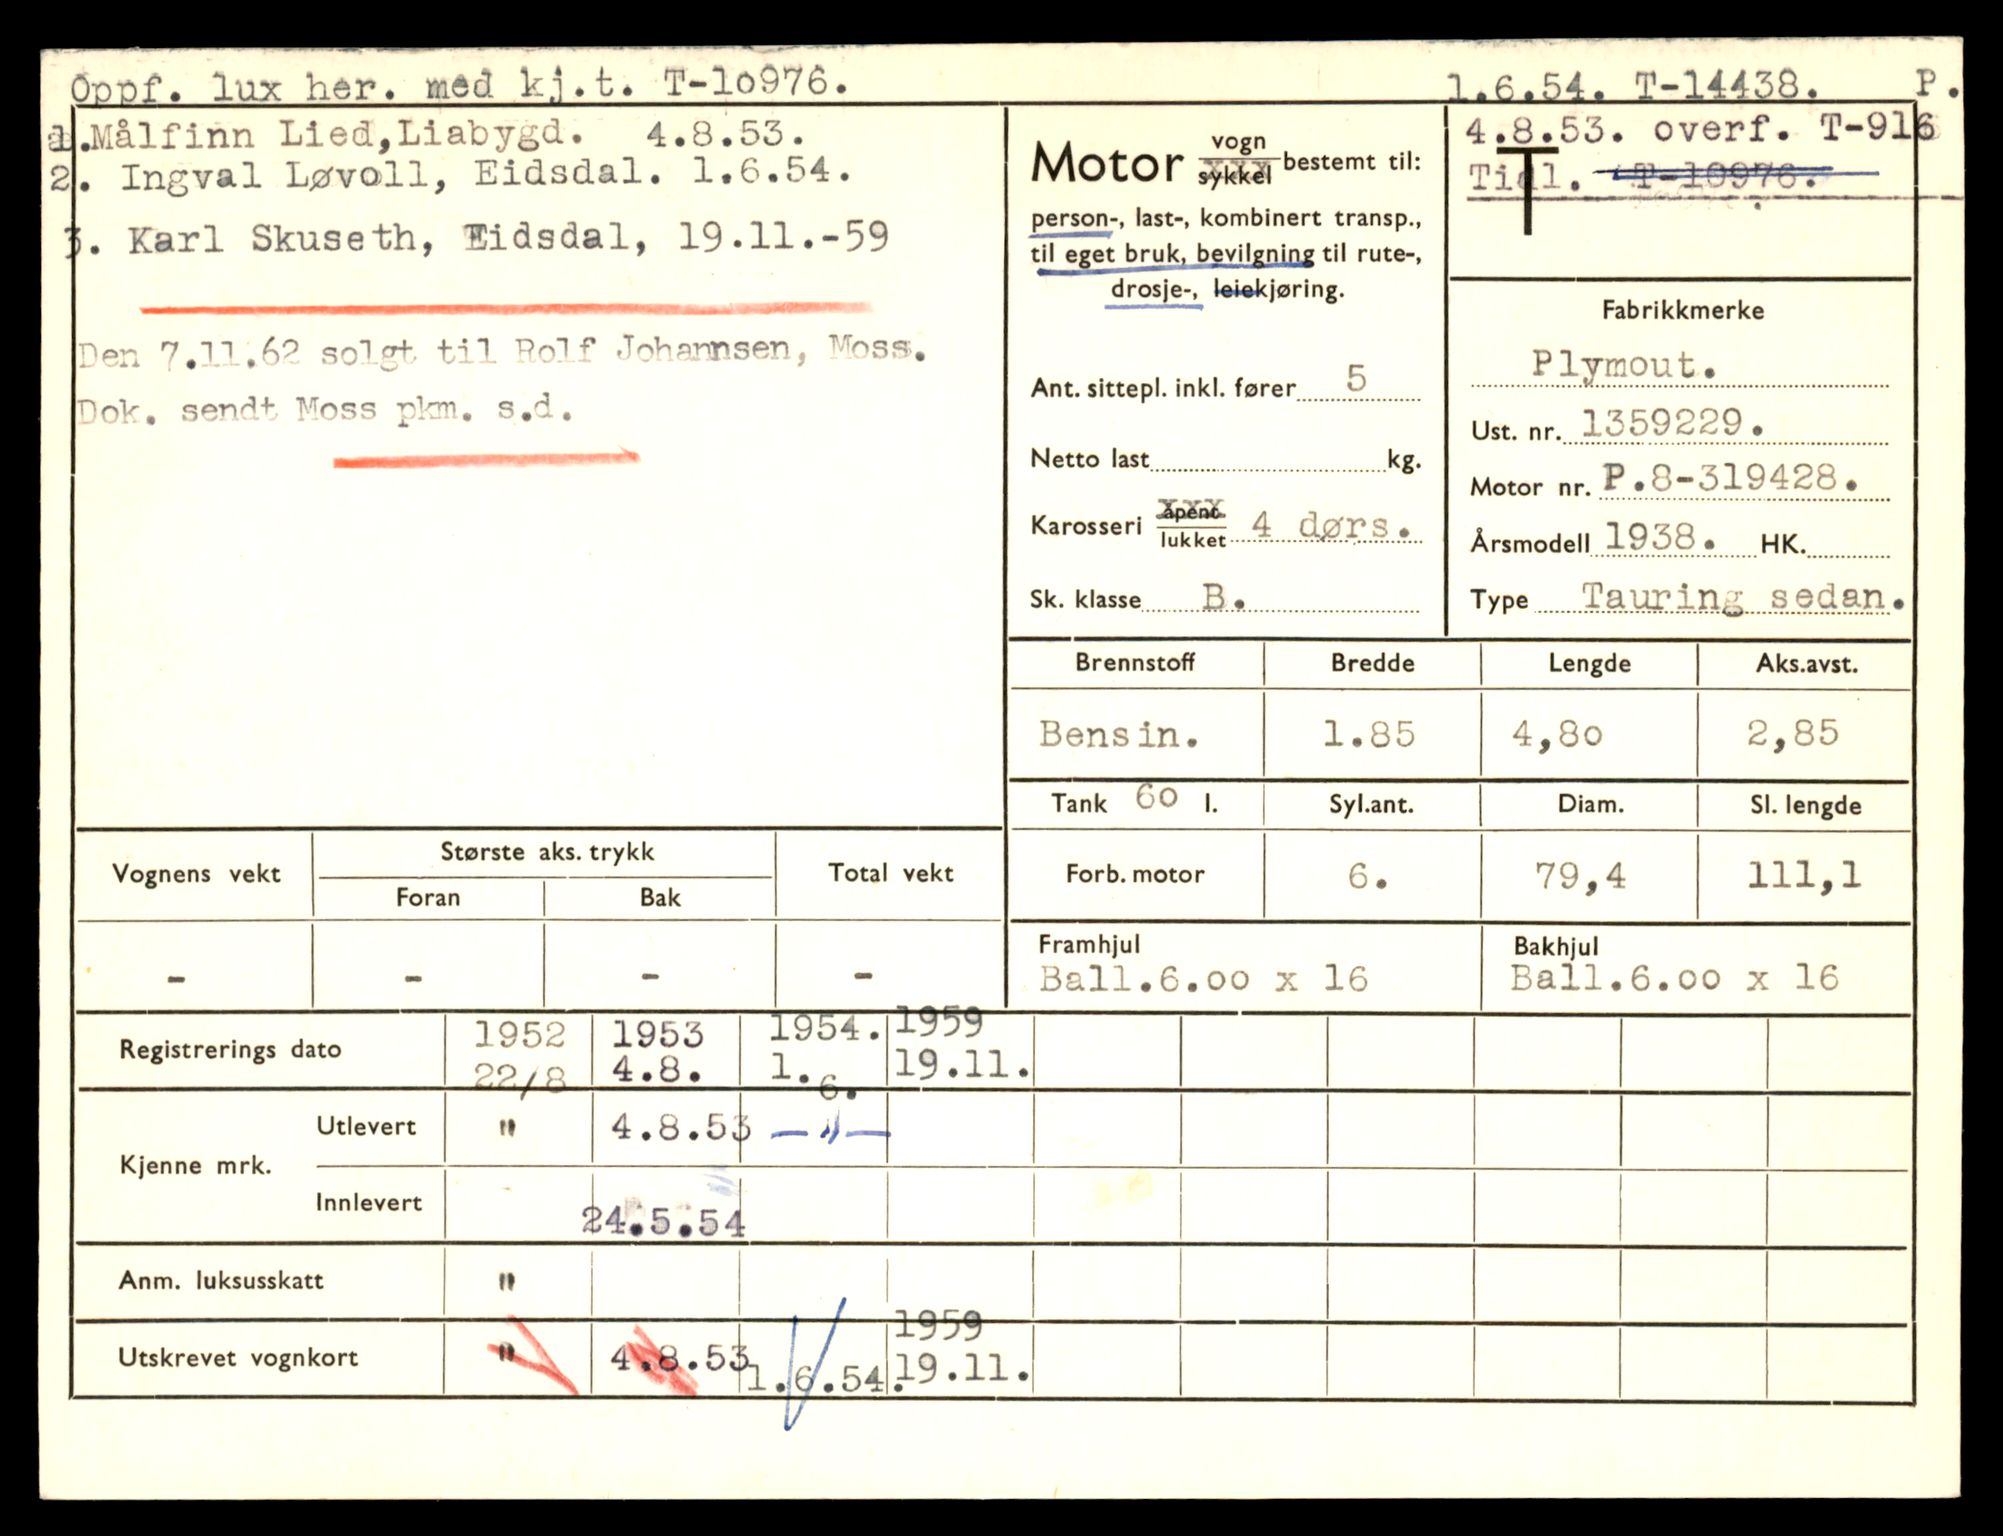 Oppf. lux her. med kj.t. T-10976.
1.6.54. T-14438. P.
1.Målfinn Lied,Liabygd. 4.8.53.
2. Ingval Løvoll, Eidsdal. 1.6.54.
3. Karl Skuseth, Eidsdal, 19.11.-59
Den 7.11.62 solgt til Rolf Johannsen, Moss.
Dok. sendt Moss pkm. s.d.
Motor vogn sykkel bestemt til:
person-, last-, kombinert transp.,
til eget bruk, bevilgning til rute-,
drosje-, leiekjøring.
Ant. sittepl. inkl. fører 5
Netto last kg.
Karosseri åpent lukket 4 dørs.
Sk. klasse B.
4.8.53. overf. T-916
Tidl. T-10976.
T
Fabrikkmerke
Plymout.
Ust. nr. 1359229.
Motor nr. P.8-319428.
Årsmodell 1938. HK.
Type Tauring sedan.
Brennstoff Bredde Lengde Aks.avst.
Bensin. 1.85 4,80 2,85
Tank 60 l. Syl.ant. Diam. Sl. lengde
Forb. motor 6. 79,4 111,1
Framhjul Bakhjul
Ball.6.00 x 16 Ball.6.00 x 16
Vognens vekt Største aks. trykk Total vekt
Foran Bak
- - - -
Registrerings dato 1952 1953 1954. 1959
22/8 4.8. 1.6. 19.11.
Kjenne mrk.
Utlevert " 4.8.53 —"—
Innlevert 24.5.54
Anm. luksusskatt "
Utskrevet vognkort " 4.8.53 1.6.54. 1959
19.11.